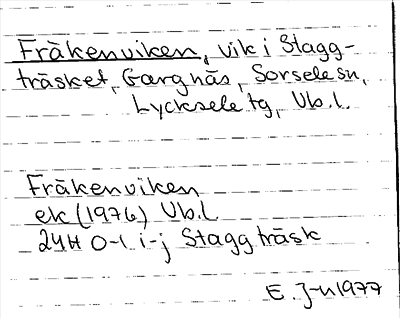 Fräkenviken, vik i Stagg-
träsket, Gargnäs, Sorsele sn,
Lycksele tg, Vb.l.
Fräkenviken
ek (1976) Vb.l
24H 0-1 i-j Staggträsk
E. J-n 1977